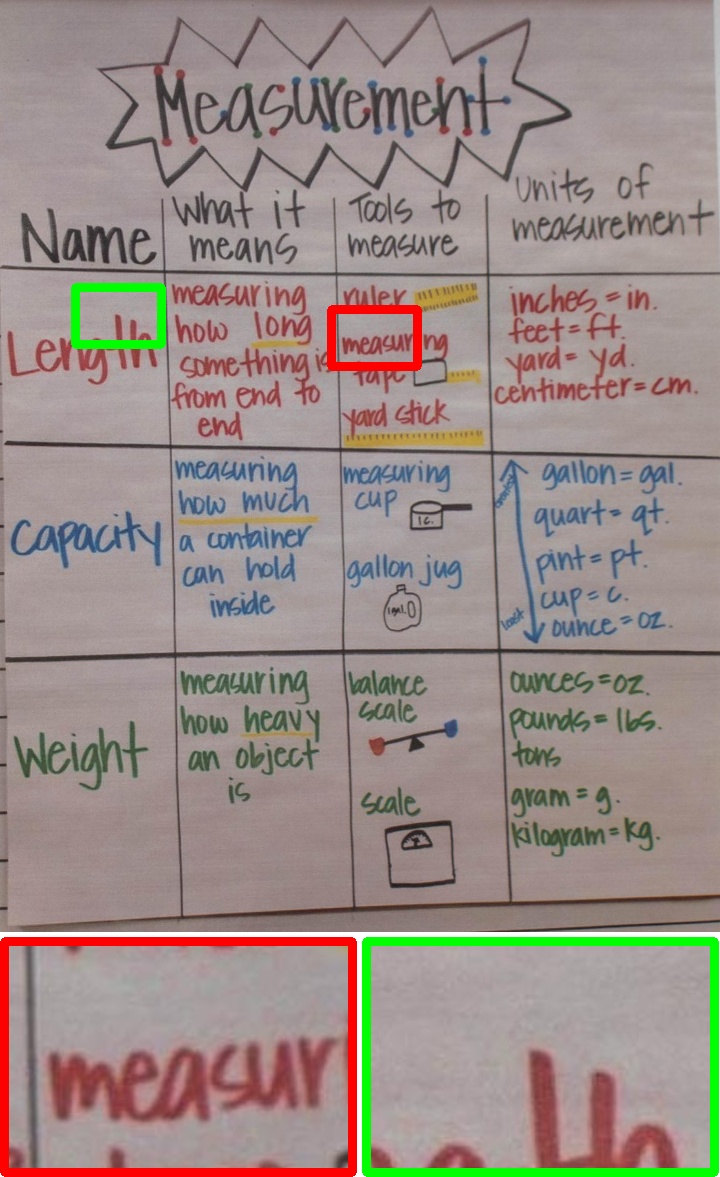 Measurement
Name
What it
means
Tools to
measure
Units of
measurement
Length
measuring
how long
something is
from end to
end
ruler
measuring
tape
yard stick
inches = in.
feet = ft.
yard = yd.
centimeter = cm.
Capacity
measuring
how much
a container
can hold
inside
measuring
cup
1c.
gallon jug
1gal.
greatest
least
gallon = gal.
quart = qt.
pint = pt.
cup = c.
ounce = oz.
Weight
measuring
how heavy
an object
is
balance
scale
scale
ounces = oz.
pounds = lbs.
tons
gram = g.
kilogram = kg.
measur
th